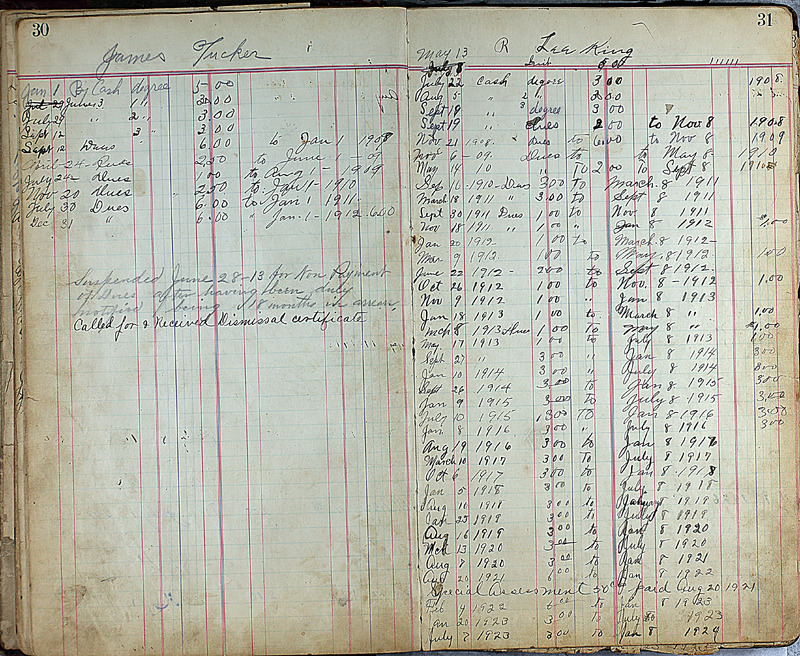 30
James Tucker
Jan 1 By Cash degree 5.00
June 3 1 " 3.00
July 29 " 2 " 3.00
Sept 12 3 " 3.00
Sept 12 Dues 6.00 to Jan 1 1908
April 24 - Dues 2.50 to June 1 - 09
July 24 - Dues 1.00 to Aug 1 - 1909
Nov 20 Dues 2.50 to Jan 1 - 1910
July 30 Dues 6.00 to Jan 1 1911
Dec 31 " 6.00 " Jan - 1 - 1912 6.00
Suspended June 28-13 for Non Payment
of Dues after having been duly
notified, being 18 months in arrears
Called for & Received Dismissal certificate
31
May 13 R Lee King
July 8
July 22 Cash degree 3 00 1908
Aug 5 " 2 " 3.00
Sept 19 " 3 degree 3 00
Sept 19 " Dues 2 00 to Nov 8 1908
Nov 21 1908 dues to 6.00 to Nov 8 1909
Nov 6 - 09 Dues to to May 8 - 1910
May 14 10 " TO 2 00 to Sept 8 1910
Sep 10 - 1910 - Dues 3 00 to March 8 1911
March 18 1911 " 3 00 to Sept 8 1911
Sept 30 1911 Dues 1 00 to Nov 8 1911
Nov 18 1911 " 1 00 " Jan 8 1912 1.00
Jan 20 1912 1 00 to March 8 1912
Mar 9 1912 1 00 to May 8 1912 1.00
June 22 1912 - 2 00 to Sept 8 1912
Oct 26 1912 1 00 to Nov. 8 - 1912 1.00
Nov 9 1912 1 00 " Jan 8 1913
Jan 18 1913 1 00 to March 8 " 1.00
Mch 8 1913 Dues 1 00 To May 8 " 1.00
May 17 1913 1 00 to July 8 1913 1 00
Sept 27 " 3 00 " Jan 8 1914 3 00
Jan 10 1914 3 00 " July 8 1914 3 00
Sept 26 1914 3 00 to Jan 8 1915 3 00
Jan 9 1915 3 00 to July 8 1915 3.00
July 1915 3 00 TO Jan 8 - 1916 3.00
Jan 8 1916 3 00 " July 8 1916 3 00
Aug 19 1916 3 00 to Jan 8 1917
March 10 1917 3 00 to July 8 1917
Oct 6 1917 3 00 to Jan 8 - 1918
Jan 5 1918 3 00 to July 8 1918
Aug 1918 3 00 to January 8 1919
Jan 25 1919 3 00 to July 8 1919
Aug 16 1919 3 00 to Jan 8 1920
Mch 13 1920 3 00 to July 8 1920
Aug 7 1920 3 00 to Jan 8 1921
Aug 20 1921 6 00 to Jan 8 1922
Special Assessment 50¢ paid Aug 20 1921
Feb 4 1922 6 00 to Jan 8 1923
Jan 20 1923 3 00 to July 8 1923
July 7 1923 3 00 to Jan 8 1924